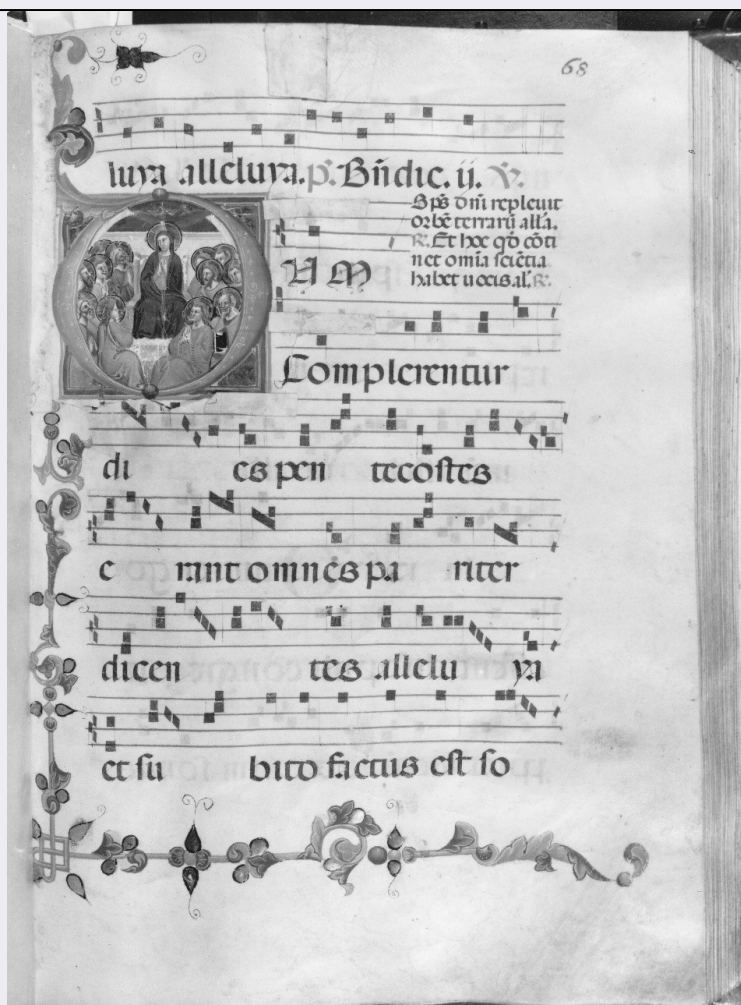 68
luya alleluya. p̄s. Bn̄dic. ij. ℣.
Sp̄s dn̄i repleuit
orbē terrarū all̄a.
℟. Et hoc qd̄ cōti
net omīa sciētia
habet uocis al̄. ℟.
UM
Complerentur
di es pen tecostes
e rant omnes pa riter
dicen tes allelu ya
et su bito factus est so